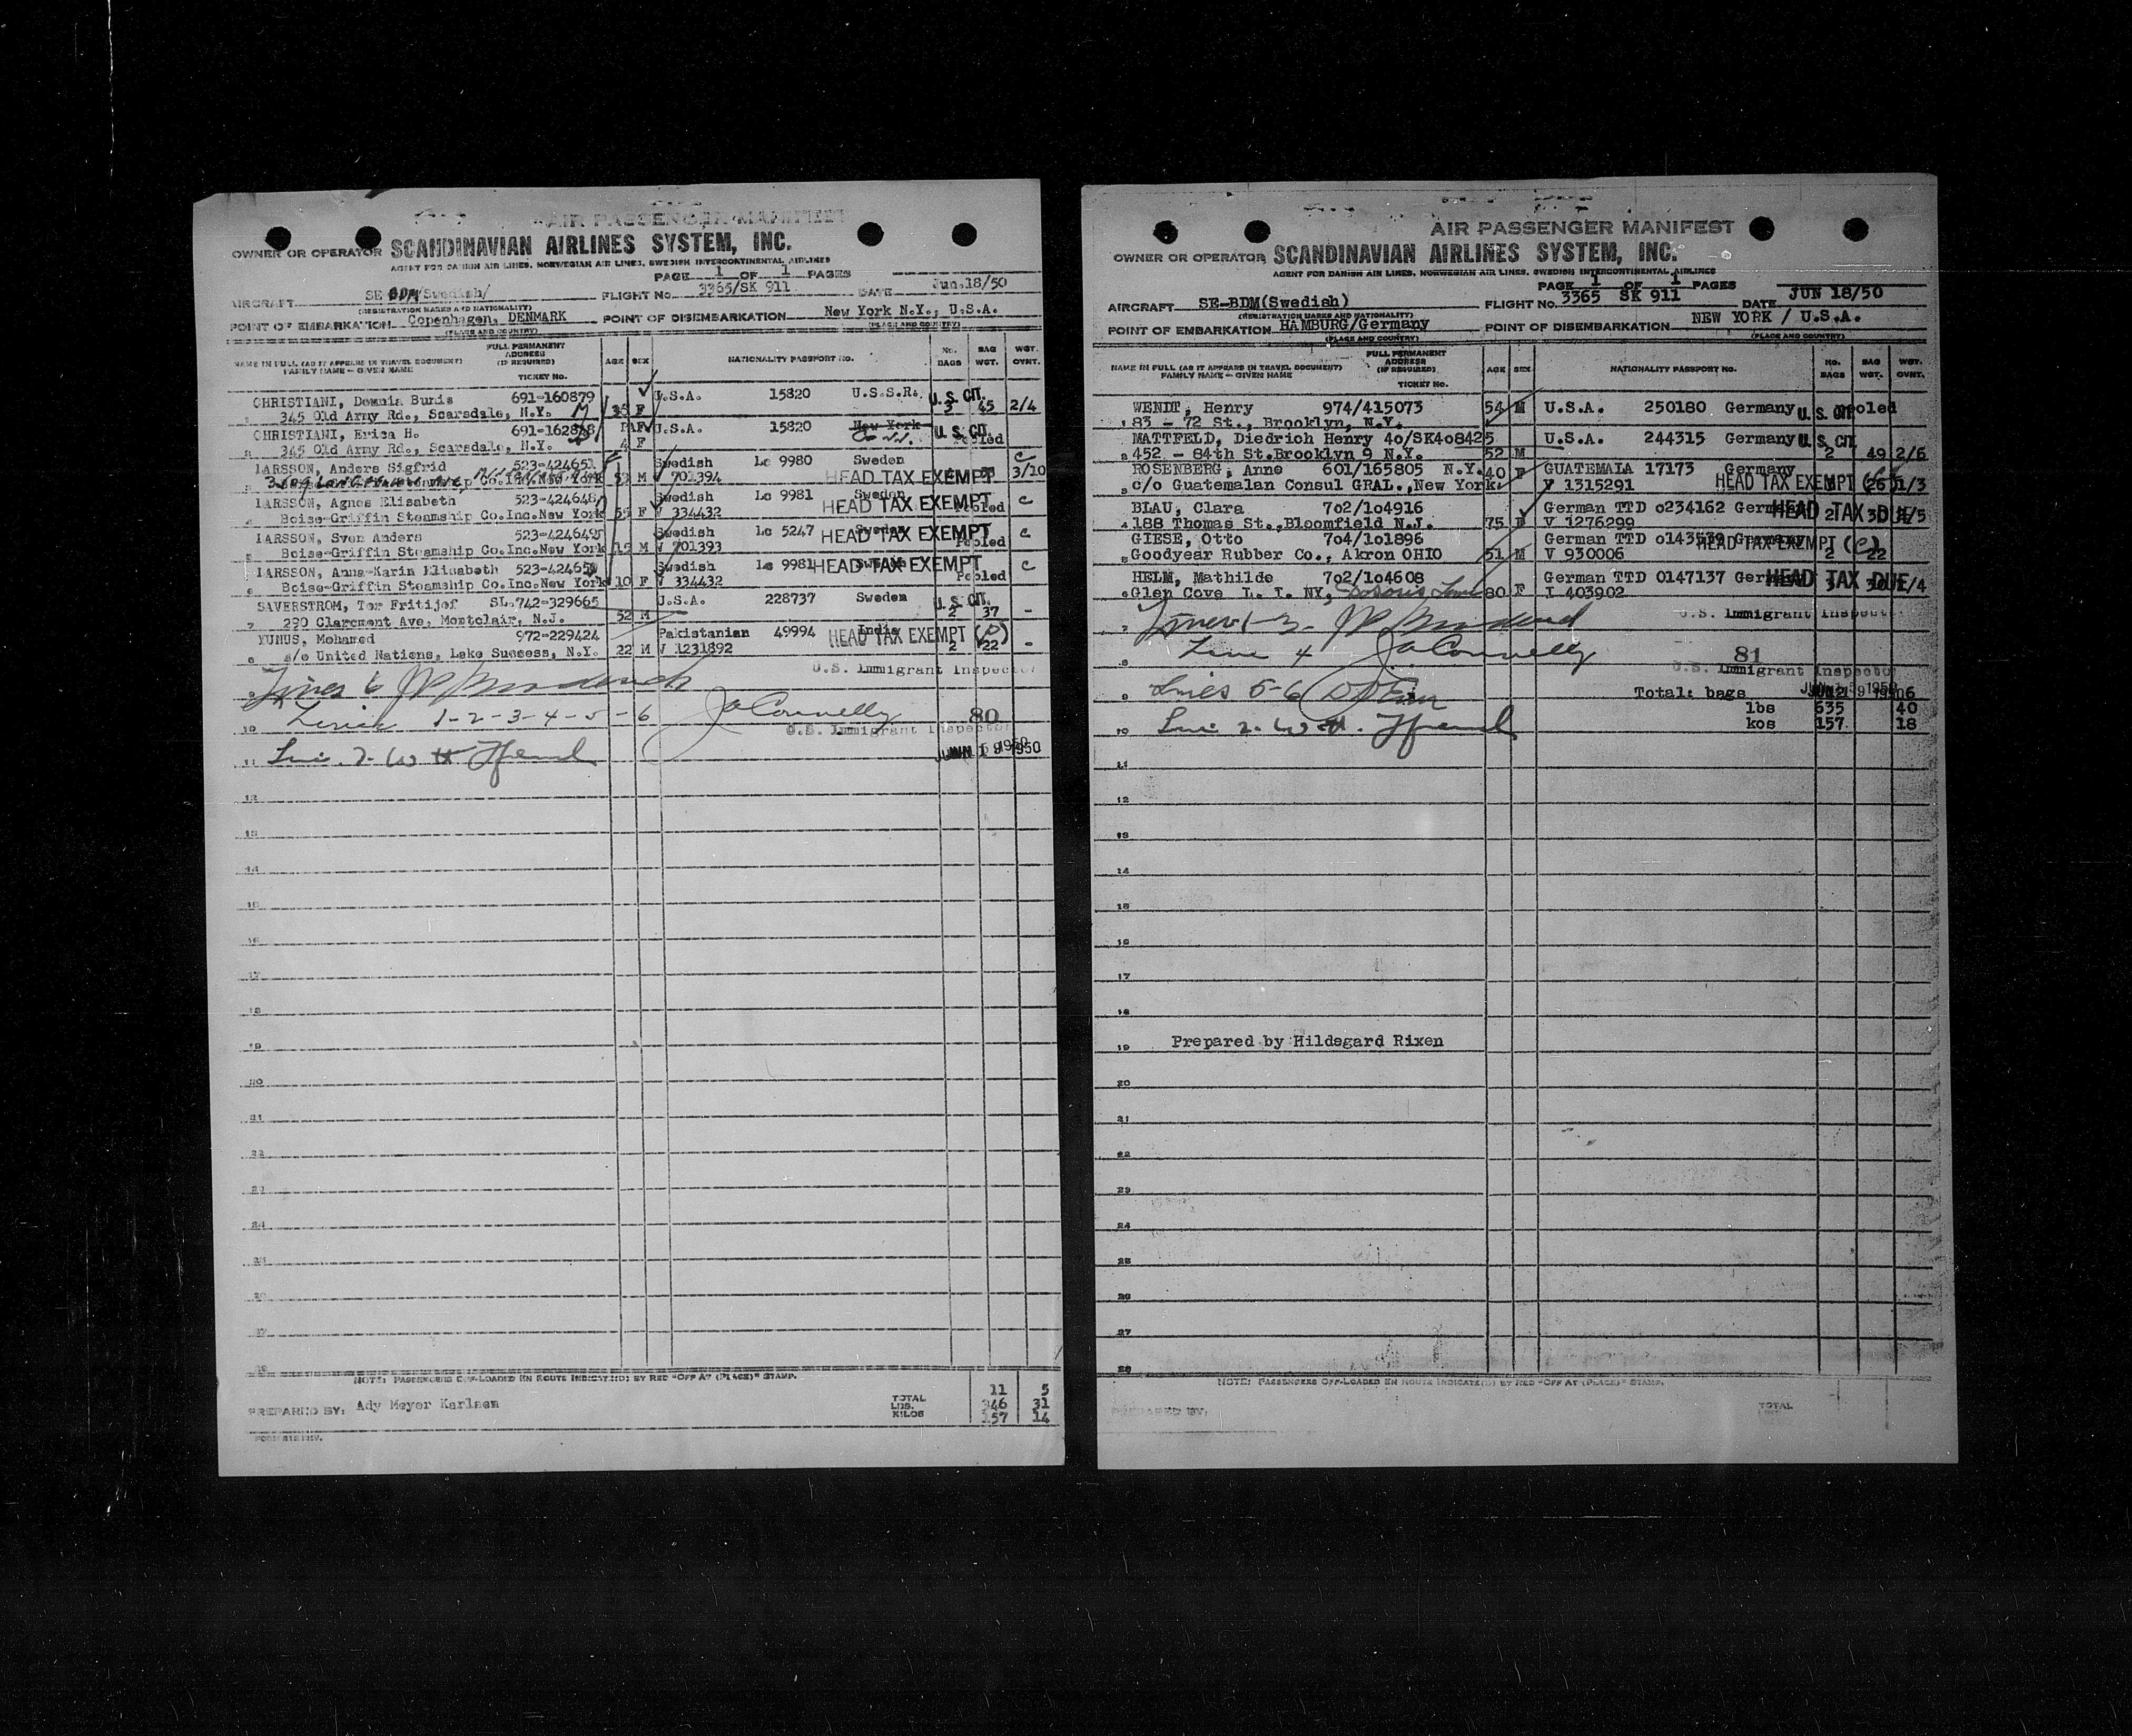 AIR PASSENGER MANIFEST
OWNER OR OPERATOR SCANDINAVIAN AIRLINES SYSTEM, INC.
AGENT FOR DANISH AIR LINES, NORWEGIAN AIR LINES, SWEDISH INTERCONTINENTAL AIRLINES
PAGE 1 OF 1 PAGES
AIRCRAFT SE BDM/Swedish/ FLIGHT NO. 3365/SK 911 DATE Jun.18/50
(REGISTRATION MARKS AND NATIONALITY)
POINT OF EMBARKATION Copenhagen, DENMARK POINT OF DISEMBARKATION New York N.Y., U.S.A.
(PLACE AND COUNTRY) (PLACE AND COUNTRY)
NAME IN FULL (AS IT APPEARS IN TRAVEL DOCUMENT) FAMILY NAME - GIVEN NAME FULL PERMANENT ADDRESS (IF REQUIRED) TICKET NO. AGE SEX NATIONALITY PASSPORT NO. NO. BAGS BAG WGT. WGT. OVNT.
CHRISTIANI, Domnia Buris 691-160879 U.S.A. 15820 U.S.S.R. U.S. CIT.
1 345 Old Army Rd., Scarsdale, N.Y. 36 F 3 45 2/4
CHRISTIANI, Erica H. 691-162848 U.S.A. 15820 New York U.S. CIT.
2 345 Old Army Rd., Scarsdale, N.Y. 4 F Pooled
LARSSON, Anders Sigfrid 523-424651 Swedish Lc 9980 Sweden C
3 Co.Inc.New York M V 701394 HEAD TAX EXEMPT 3/10
LARSSON, Agnes Elisabeth 523-424648 Swedish Lc 9981 Sweden
4 Boise-Griffin Steamship Co.Inc.New York F V 334432 HEAD TAX EXEMPT Pooled C
LARSSON, Sven Anders 523-424649 Swedish Lc 5247 Sweden
5 Boise-Griffin Steamship Co.Inc.New York 15 M V 701393 HEAD TAX EXEMPT Pooled C
LARSSON, Anna-Karin Elisabeth 523-424650 Swedish Lc 9981 HEAD TAX EXEMPT
6 Boise-Griffin Steamship Co.Inc.New York 10 F V 334432 Pooled C
SAVERSTROM, Tor Fritijof SL.742-329665 U.S.A. 228737 Sweden U.S. CIT.
7 290 Claremont Ave, Montclair, N.J. 52 M 2 37 -
YUNUS, Mohamed 972-229424 Pakistanian 49994 India HEAD TAX EXEMPT (C)
8 c/o United Nations, Lake Success, N.Y. 22 M V 1231892 2 22 -
U.S. Immigrant Inspector
9 Lines 6
10 Lines 1-2-3-4-5-6 JA Connelly 80
U.S. Immigrant Inspector
11 JUN 19 1950
12
13
14
15
16
17
18
19
20
21
22
23
24
25
26
27
28
NOTE: PASSENGERS OFF-LOADED EN ROUTE INDICATED BY RED "OFF AT (PLACE)" STAMP.
PREPARED BY: Ady Meyer Karlsen
TOTAL 11 5
LBS. 346 31
KILOS 157 14
AIR PASSENGER MANIFEST
OWNER OR OPERATOR SCANDINAVIAN AIRLINES SYSTEM, INC.
AGENT FOR DANISH AIR LINES, NORWEGIAN AIR LINES, SWEDISH INTERCONTINENTAL AIRLINES
PAGE 1 OF 1 PAGES
AIRCRAFT SE-BDM(Swedish) FLIGHT NO. 3365 SK 911 DATE JUN 18/50
(REGISTRATION MARKS AND NATIONALITY)
POINT OF EMBARKATION HAMBURG/Germany POINT OF DISEMBARKATION NEW YORK / U.S.A.
(PLACE AND COUNTRY) (PLACE AND COUNTRY)
NAME IN FULL (AS IT APPEARS IN TRAVEL DOCUMENT) FAMILY NAME - GIVEN NAME FULL PERMANENT ADDRESS (IF REQUIRED) TICKET NO. AGE SEX NATIONALITY PASSPORT NO. NO. BAGS BAG WGT. WGT. OVNT.
WENDT, Henry 974/415073 54 M U.S.A. 250180 Germany U.S. CIT pooled
1 83 - 72 St., Brooklyn, N.Y.
MATTFELD, Diedrich Henry 4o/SK4o8425 U.S.A. 244315 Germany U.S. CIT.
2 452 - 84th St.Brooklyn 9 N.Y. 52 M 2 49 2/6
ROSENBERG, Anne 601/165805 N.Y. 40 F GUATEMALA 17173 Germany
3 c/o Guatemalan Consul GRAL.,New York. V 1315291 HEAD TAX EXEMPT (C) 26 1/3
BLAU, Clara 7o2/1o4916 German TTD o234162 HEAD TAX DUE
4 188 Thomas St.,Bloomfield N.J. 75 V 1276299
GIESE, Otto 7o4/1o1896 German TTD o143539 Germany
5 Goodyear Rubber Co., Akron OHIO 51 M V 930006 HEAD TAX EXEMPT (C) 2 22
HELM, Mathilde 7o2/1o4608 German TTD 0147137 HEAD TAX DUE
6 Glen Cove L. I. NY, 80 F I 403902
U.S. Immigrant Inspector
7 Lines 1-3-
8 Line 4 JA Connelly 81
U.S. Immigrant Inspector
9 Lines 5-6 Total: bags 6
lbs 635 40
10 kos 157 18
11
12
13
14
15
16
17
18
19 Prepared by Hildegard Rixen
20
21
22
23
24
25
26
27
28
NOTE: PASSENGERS OFF-LOADED EN ROUTE INDICATED BY RED "OFF AT (PLACE)" STAMP.
PREPARED BY:
TOTAL